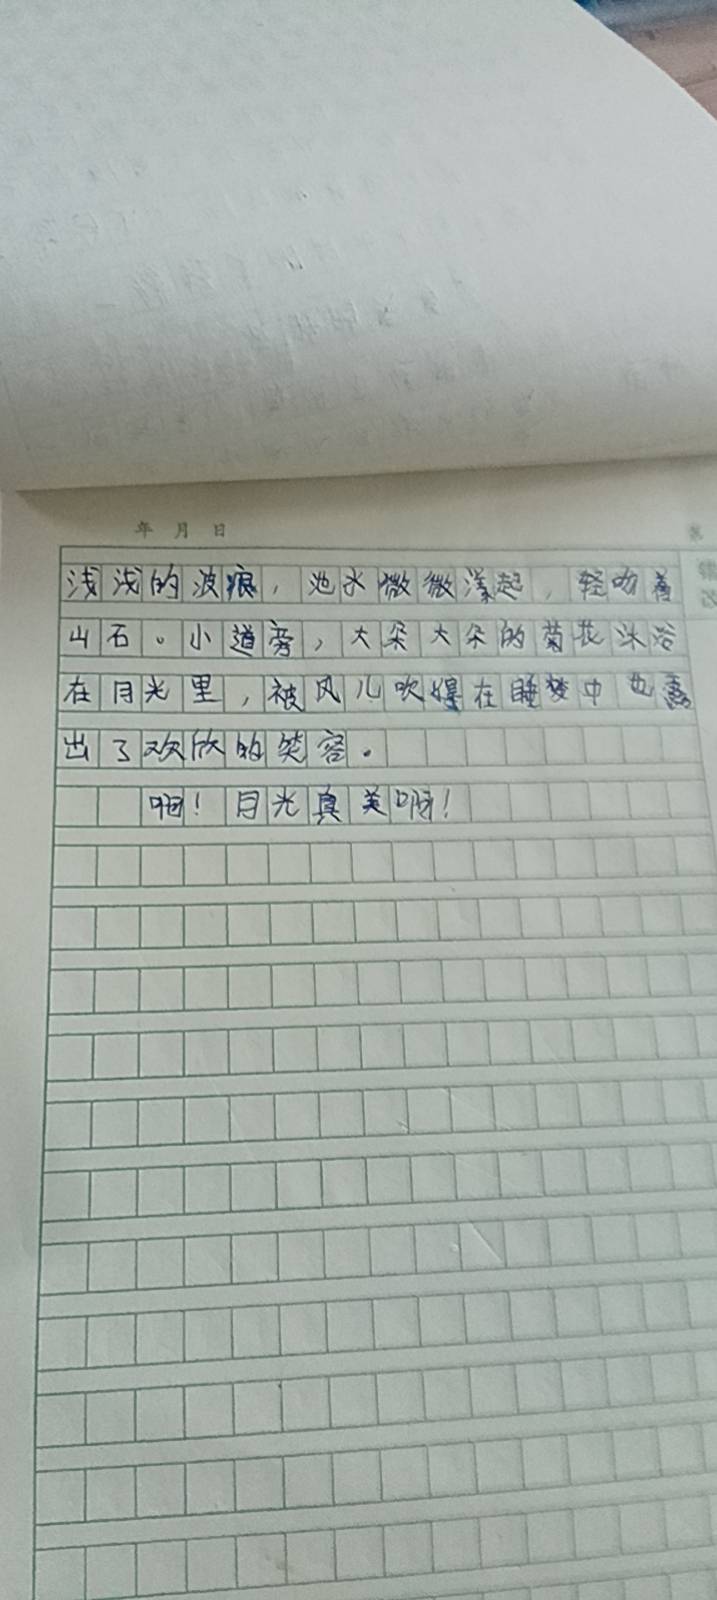 年 月 日
浅浅的波痕，池水微微漾起，轻吻着
山石。小道旁，大朵大朵的菊花沐浴
在月光里，被风儿吹得在睡梦中也露
出了欢欣的笑容。
啊！月光真美啊！